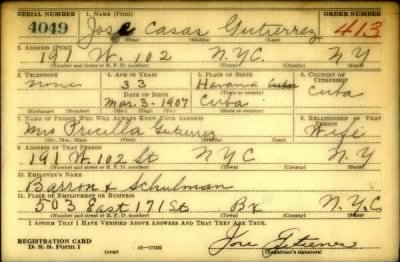 SERIAL NUMBER 1. NAME (Print) ORDER NUMBER
4049 Jose Casas Gutierrez 413
(First) (Middle) (Last)
2. ADDRESS (Print)
191 W. 102 N.Y.C. N Y
(Number and street or R. F. D. number) (Town) (County) (State)
3. TELEPHONE 4. AGE IN YEARS 5. PLACE OF BIRTH 6. COUNTRY OF CITIZENSHIP
none 33 Havana Cuba Cuba
DATE OF BIRTH (Town or county)
Mar. 3-1907 Cuba
(Exchange) (Number) (Mo.) (Day) (Yr.) (State or country)
7. NAME OF PERSON WHO WILL ALWAYS KNOW YOUR ADDRESS 8. RELATIONSHIP OF THAT PERSON
Mrs Pricilla Gutierrez Wife
(Mr., Mrs., Miss) (First) (Middle) (Last)
9. ADDRESS OF THAT PERSON
191 W. 102 St N Y C N.Y
(Number and street or R. F. D. number) (Town) (County) (State)
10. EMPLOYER'S NAME
Barron & Schulman
11. PLACE OF EMPLOYMENT OR BUSINESS
503 East 171 St Bx N.Y.C
(Number and street or R. F. D. number) (Town) (County) (State)
I AFFIRM THAT I HAVE VERIFIED ABOVE ANSWERS AND THAT THEY ARE TRUE.
REGISTRATION CARD
D. S. S. Form 1 Jose
(Registrant's signature)